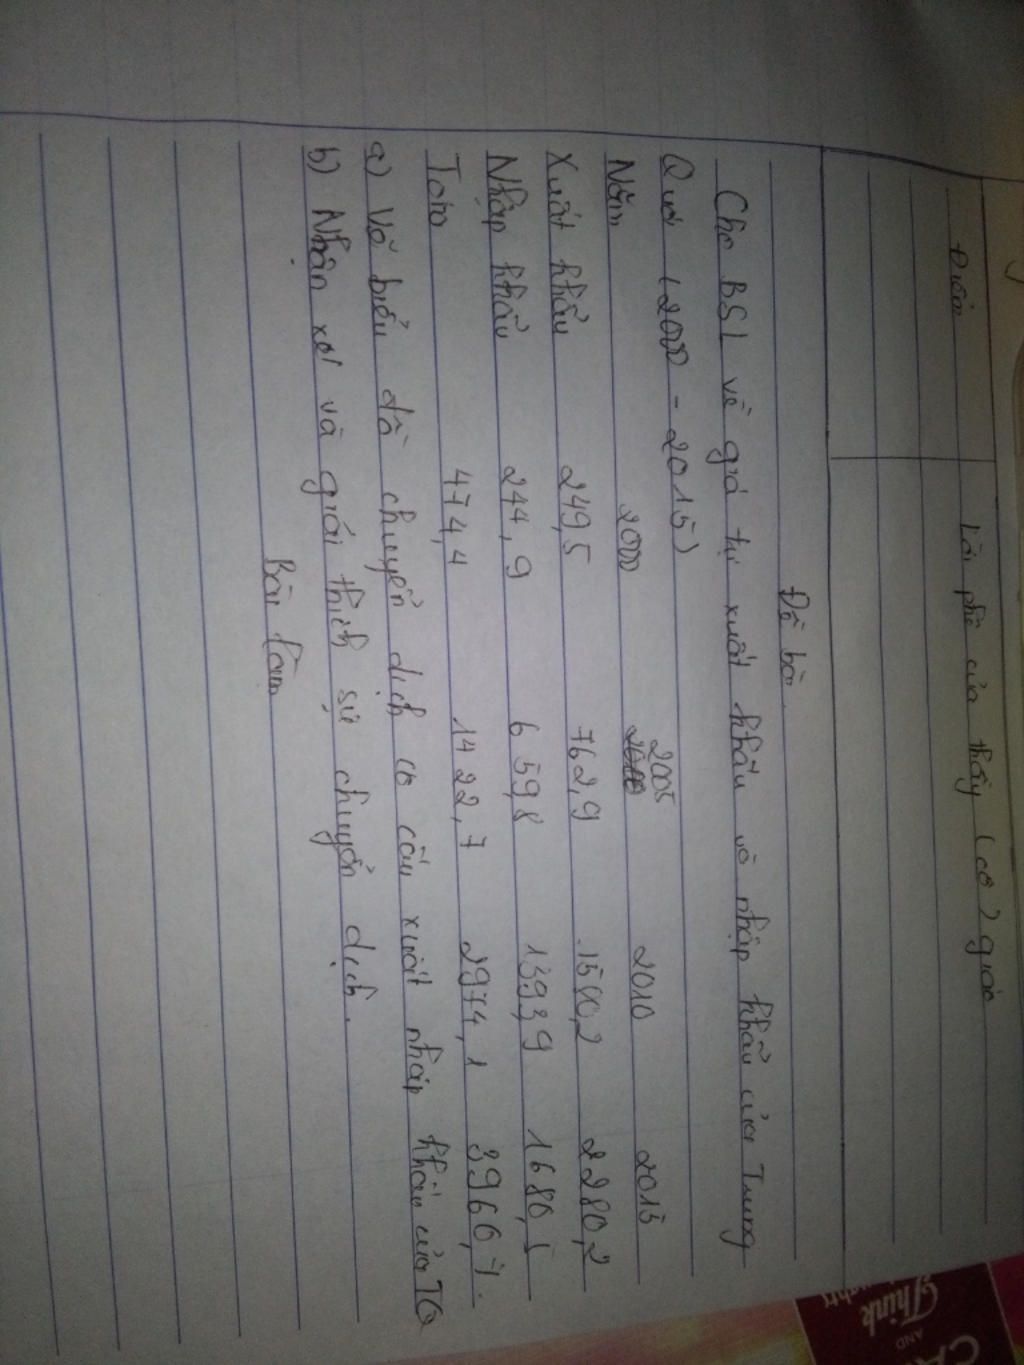 Điểm
Lời phê của thầy (cô) giáo
Đề bài
Cho BSL về giá trị xuất khẩu và nhập khẩu của Trung
Quốc (2000 - 2015)
Năm 2000 2005 2010 2015
Xuất khẩu 249,5 762,9 1580,2 2280,2
Nhập khẩu 244,9 659,8 1393,9 1680,1
Toàn 474,4 1422,7 2974,1 3960,7
a) Vẽ biểu đồ chuyển dịch cơ cấu xuất nhập khẩu của TQ
b) Nhận xét và giải thích sự chuyển dịch.
Bài làm
AND
Think